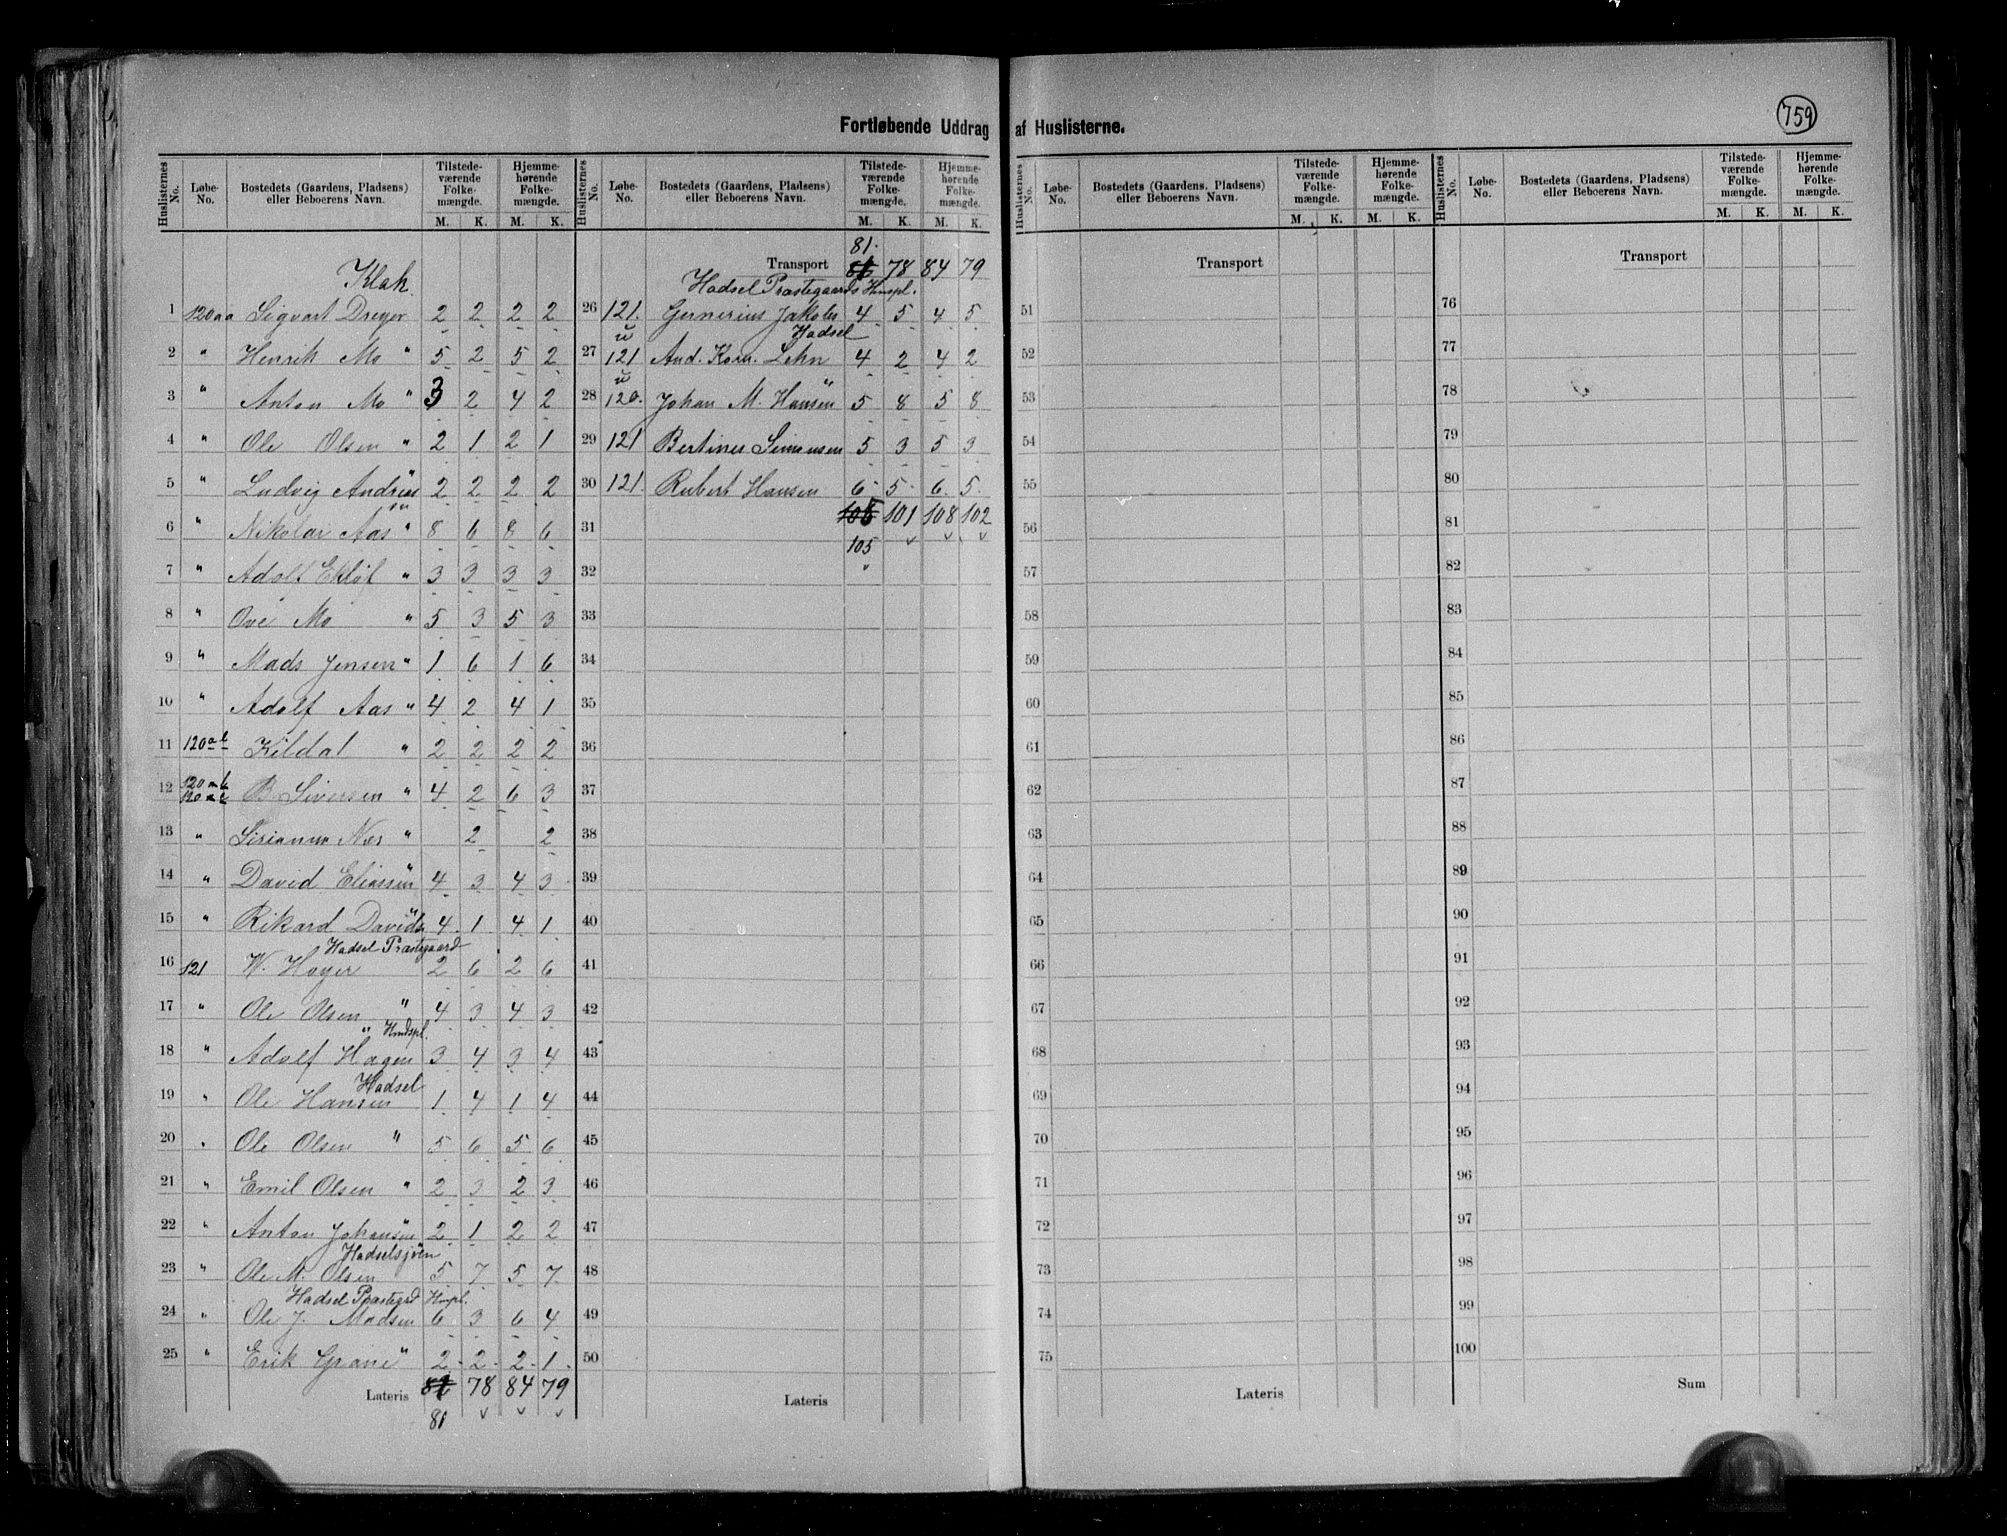 759
Fortløbende Uddrag af Huslisterne.
Huslisternes No. Løbe-No. Bostedets (Gaardens, Pladsens) eller Beboerens Navn. Tilstede-værende Folke-mængde. M. K. Hjemme-hørende Folke-mængde. M. K.
Klak
1 120aa Sigvart Dreyer 2 2 2 2
2 " Henrik Mo " 5 2 5 2
3 " Anton Mo " 3 2 4 2
4 " Ole Olsen " 2 1 2 1
5 " Ludvig Andreas 2 2 2 2
6 " Nikolai Aas " 8 6 8 6
7 " Adolf Ekløf " 3 3 3 3
8 " Ove Mo " 5 3 5 3
9 " Mads Jensen " 1 6 1 6
10 " Adolf Aas " 4 2 4 1
11 120 Kildal " 2 2 2 2
12 120 120 B. Siversen " 4 2 6 3
13 " Nær " 2 2
14 " David Eliassen 4 3 4 3
15 " Rikard Davids 4 1 4 1
Hadsel Præstegaard
16 121 W. Høyer 2 6 2 6
17 " Ole Olsen " 4 3 4 3
" Hmdspl.
18 " Adolf Hagen 3 4 3 4
Hadsel
19 " Ole Hansen 1 4 1 4
20 " Ole Olsen " 5 6 5 6
21 " Emil Olsen " 2 3 2 3
22 " Anton Johansen 2 1 2 2
Hadselsjøen
23 " Ole M. Olsen 5 7 5 7
Hadsel Præstegrd Hmpl.
24 " Ole J. Madsen 6 3 6 4
25 " Erik Grane " 2 2 2 1
Lateris 78 84 79
81
Huslisternes No. Løbe-No. Bostedets (Gaardens, Pladsens) eller Beboerens Navn. Tilstede-værende Folke-mængde. M. K. Hjemme-hørende Folke-mængde. M. K.
81
Transport 78 84 79
Hadsel Præstegaards Hmspl.
26 121 Gernerius Jakobs 4 5 4 5
Hadsel
27 121 And. Korn. Lehn 4 2 4 2
28 120. Johan M. Hansen 5 8 5 8
29 121 Bertines Simonsen 5 3 5 3
30 121. Robert Hansen 6 5 6 5
31 101 108 102
105
32
33
34
35
36
37
38
39
40
41
42
43
44
45
46
47
48
49
50
Lateris
Huslisternes No. Løbe-No. Bostedets (Gaardens, Pladsens) eller Beboerens Navn. Tilstede-værende Folke-mængde. M. K. Hjemme-hørende Folke-mængde. M. K.
Transport
51
52
53
54
55
56
57
58
59
60
61
62
63
64
65
66
67
68
69
70
71
72
73
74
75
Lateris
Huslisternes No. Løbe-No. Bostedets (Gaardens, Pladsens) eller Beboerens Navn. Tilstede-værende Folke-mængde. M. K. Hjemme-hørende Folke-mængde. M. K.
Transport
76
77
78
79
80
81
82
83
84
85
86
87
88
89
90
91
92
93
94
95
96
97
98
99
100
Sum